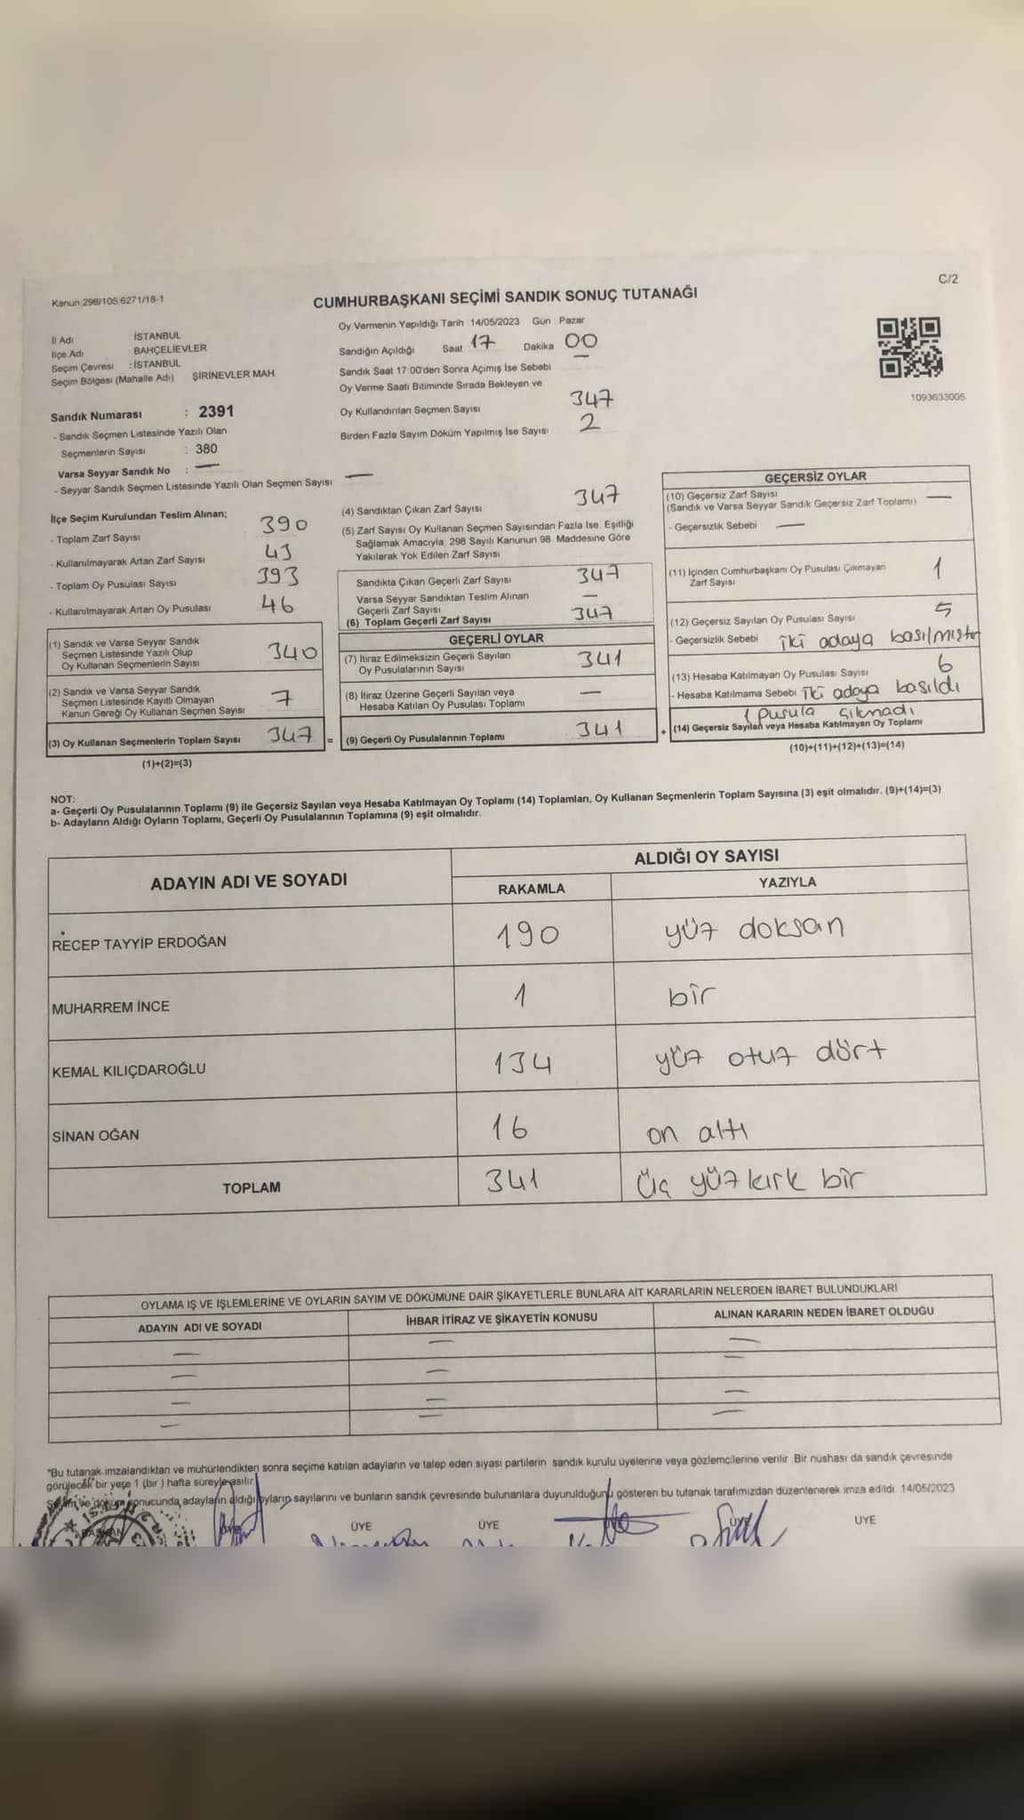 C/2
Kanun:298/105,6271/18-1
CUMHURBAŞKANI SEÇİMİ SANDIK SONUÇ TUTANAĞI
İl Adı İSTANBUL
İlçe Adı BAHÇELİEVLER
Seçim Çevresi : İSTANBUL
Seçim Bölgesi (Mahalle Adı) ŞİRİNEVLER MAH.
Sandık Numarası : 2391
- Sandık Seçmen Listesinde Yazılı Olan
Seçmenlerin Sayısı : 380
Varsa Seyyar Sandık No : —
- Seyyar Sandık Seçmen Listesinde Yazılı Olan Seçmen Sayısı —
Oy Vermenin Yapıldığı Tarih 14/05/2023 Gün Pazar
Sandığın Açıldığı Saat 17 Dakika 00
Sandık Saat 17:00'den Sonra Açımış İse Sebebi —
Oy Verme Saati Bitiminde Sırada Bekleyen ve
Oy Kullandırılan Seçmen Sayısı 347
Birden Fazla Sayım Döküm Yapılmış İse Sayısı 2
1093633005
İlçe Seçim Kurulundan Teslim Alınan;
- Toplam Zarf Sayısı 390
- Kullanılmayarak Artan Zarf Sayısı 43
- Toplam Oy Pusulası Sayısı 393
- Kullanılmayarak Artan Oy Pusulası 46
(1) Sandık ve Varsa Seyyar Sandık
Seçmen Listesinde Yazılı Olup
Oy Kullanan Seçmenlerin Sayısı 340
(2) Sandık ve Varsa Seyyar Sandık
Seçmen Listesinde Kayıtlı Olmayan
Kanun Gereği Oy Kullanan Seçmen Sayısı 7
(3) Oy Kullanan Seçmenlerin Toplam Sayısı 347 =
(1)+(2)=(3)
(4) Sandıktan Çıkan Zarf Sayısı 347
(5) Zarf Sayısı Oy Kullanan Seçmen Sayısından Fazla İse, Eşitliği
Sağlamak Amacıyla, 298 Sayılı Kanunun 98. Maddesine Göre
Yakılarak Yok Edilen Zarf Sayısı
Sandıkta Çıkan Geçerli Zarf Sayısı 347
Varsa Seyyar Sandıktan Teslim Alınan
Geçerli Zarf Sayısı —
(6) Toplam Geçerli Zarf Sayısı 347
GEÇERLİ OYLAR
(7) İtiraz Edilmeksizin Geçerli Sayılan
Oy Pusulalarının Sayısı 341
(8) İtiraz Üzerine Geçerli Sayılan veya
Hesaba Katılan Oy Pusulası Toplamı —
(9) Geçerli Oy Pusulalarının Toplamı 341 +
GEÇERSİZ OYLAR
(10) Geçersiz Zarf Sayısı
(Sandık ve Varsa Seyyar Sandık Geçersiz Zarf Toplamı) —
- Geçersizlik Sebebi —
(11) İçinden Cumhurbaşkanı Oy Pusulası Çıkmayan
Zarf Sayısı 1
(12) Geçersiz Sayılan Oy Pusulası Sayısı 5
- Geçersizlik Sebebi iki adaya basılmıştır
(13) Hesaba Katılmayan Oy Pusulası Sayısı 6
- Hesaba Katılmama Sebebi iki adaya basıldı
1 pusula çıkmadı
(14) Geçersiz Sayılan veya Hesaba Katılmayan Oy Toplamı
(10)+(11)+(12)+(13)=(14)
NOT:
a- Geçerli Oy Pusulalarının Toplamı (9) ile Geçersiz Sayılan veya Hesaba Katılmayan Oy Toplamı (14) Toplamları, Oy Kullanan Seçmenlerin Toplam Sayısına (3) eşit olmalıdır. (9)+(14)=(3)
b- Adayların Aldığı Oyların Toplamı, Geçerli Oy Pusulalarının Toplamına (9) eşit olmalıdır.
ADAYIN ADI VE SOYADI ALDIĞI OY SAYISI
RAKAMLA YAZIYLA
RECEP TAYYİP ERDOĞAN 190 yüz doksan
MUHARREM İNCE 1 bir
KEMAL KILIÇDAROĞLU 134 yüz otuz dört
SİNAN OĞAN 16 on altı
TOPLAM 341 Üç yüz kırk bir
OYLAMA İŞ VE İŞLEMLERİNE VE OYLARIN SAYIM VE DÖKÜMÜNE DAİR ŞİKAYETLERLE BUNLARA AİT KARARLARIN NELERDEN İBARET BULUNDUKLARI
ADAYIN ADI VE SOYADI İHBAR İTİRAZ VE ŞİKAYETİN KONUSU ALINAN KARARIN NEDEN İBARET OLDUĞU
*Bu tutanak imzalandıktan ve mühürlendikten sonra seçime katılan adayların ve talep eden siyasi partilerin sandık kurulu üyelerine veya gözlemcilerine verilir. Bir nüshası da sandık çevresinde
görülecek bir yere 1 (bir) hafta süreyle asılır.
Sayım ve döküm sonucunda adayların aldığı oyların sayılarını ve bunların sandık çevresinde bulunanlara duyurulduğunu gösteren bu tutanak tarafımızdan düzenlenerek imza edildi. 14/05/2023
BAŞKAN ÜYE ÜYE ÜYE ÜYE